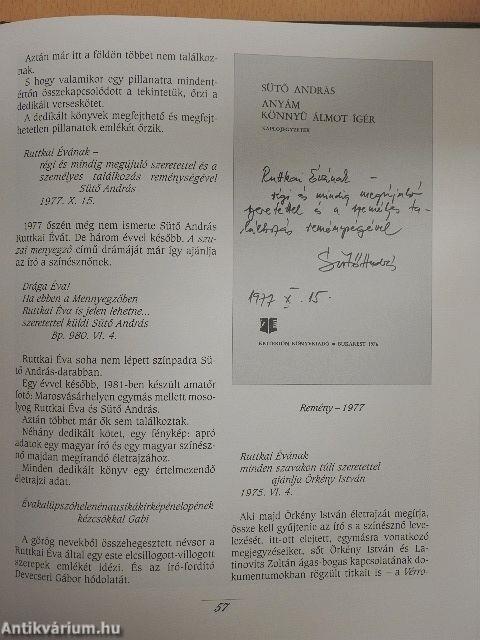 Aztán már itt a földön többet nem találkoz-
nak.
S hogy valamikor egy pillanatra mindent-
értőn összekapcsolódott a tekintetük, őrzi a
dedikált verseskötet.
A dedikált könyvek megfejthető és megfejt-
hetetlen pillanatok emlékét őrzik.
Ruttkai Évának –
régi és mindig megújuló szeretettel és a
személyes találkozás reménységével
Sütő András
1977. X. 15.
1977 őszén még nem ismerte Sütő András
Ruttkai Évát. De három évvel később, A szu-
zai menyegző című drámáját már így ajánlja
az író a színésznőnek.
Drága Éva!
Ha ebben a Mennyegzőben
Ruttkai Éva is jelen lehetne...
szeretettel küldi Sütő András
Bp. 980. VI. 4.
Ruttkai Éva soha nem lépett színpadra Sü-
tő András-darabban.
Egy évvel később, 1981-ben készült amatőr
fotó: Marosvásárhelyen egymás mellett moso-
lyog Ruttkai Éva és Sütő András.
Aztán többet már ők sem találkoztak.
Néhány dedikált kötet, egy fénykép: apró
adatok egy magyar író és egy magyar színész-
nő majdan megírandó életrajzához.
Minden dedikált könyv egy értelmezendő
életrajzi adat.
Évakalüpszóhelenénausikákirképénelopének
kézcsókkal Gabi
A görög nevekből összehegesztett névsor a
Ruttkai Éva által egy este elcsillogott-villogott
szerepek emlékét idézi. És az író-fordító
Devecseri Gábor hódolatát.
SÜTŐ ANDRÁS
ANYÁM
KÖNNYŰ ÁLMOT ÍGÉR
NAPLÓJEGYZETEK
Ruttkai Évának –
régi és mindig megújuló
szeretettel és a személyes ta-
lálkozás reménységével
Sütő András
1977 X. 15.
KRITERION KÖNYVKIADÓ • BUKAREST 1976
Remény – 1977
Ruttkai Évának
minden szavakon túli szeretettel
ajánlja Örkény István
1975. VI. 4.
Aki majd Örkény István életrajzát megírja,
össze kell gyűjtenie az író s a színésznő leve-
lezését, itt-ott elejtett, egymásra vonatkozó
megjegyzéseiket, sőt Örkény István és La-
tinovits Zoltán ágas-bogas kapcsolatának do-
kumentumokban rögzült titkait is – a Vérro-
57
Antikvárium.hu